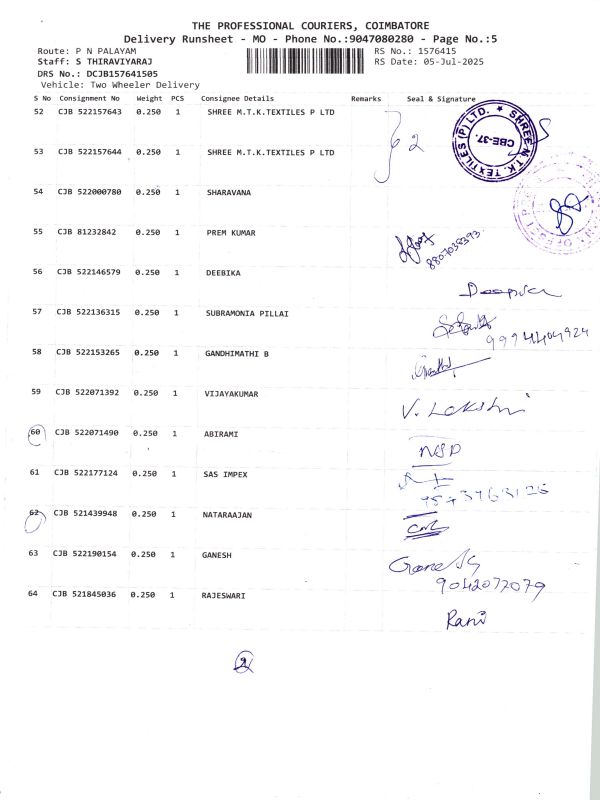 THE PROFESSIONAL COURIERS, COIMBATORE
Delivery Runsheet - MO - Phone No.:9047080280 - Page No.:5
Route: P N PALAYAM RS No.: 1576415
Staff: S THIRAVIYARAJ RS Date: 05-Jul-2025
DRS No.: DCJB157641505
Vehicle: Two Wheeler Delivery
S No Consignment No Weight PCS Consignee Details Remarks Seal & Signature
52 CJB 522157643 0.250 1 SHREE M.T.K.TEXTILES P LTD
2
SHREE M.T.K. TEXTILES (P) LTD. * CBE-37.
53 CJB 522157644 0.250 1 SHREE M.T.K.TEXTILES P LTD
54 CJB 522000780 0.250 1 SHARAVANA
55 CJB 81232842 0.250 1 PREM KUMAR
56 CJB 522146579 0.250 1 DEEBIKA
57 CJB 522136315 0.250 1 SUBRAMONIA PILLAI
9994404924
58 CJB 522153265 0.250 1 GANDHIMATHI B
59 CJB 522071392 0.250 1 VIJAYAKUMAR
V. Lakshmi
60 CJB 522071490 0.250 1 ABIRAMI
NSP
61 CJB 522177124 0.250 1 SAS IMPEX
62 CJB 521439948 0.250 1 NATARAAJAN
63 CJB 522190154 0.250 1 GANESH
Ganesh
9042077079
64 CJB 521845036 0.250 1 RAJESWARI
Rani
2